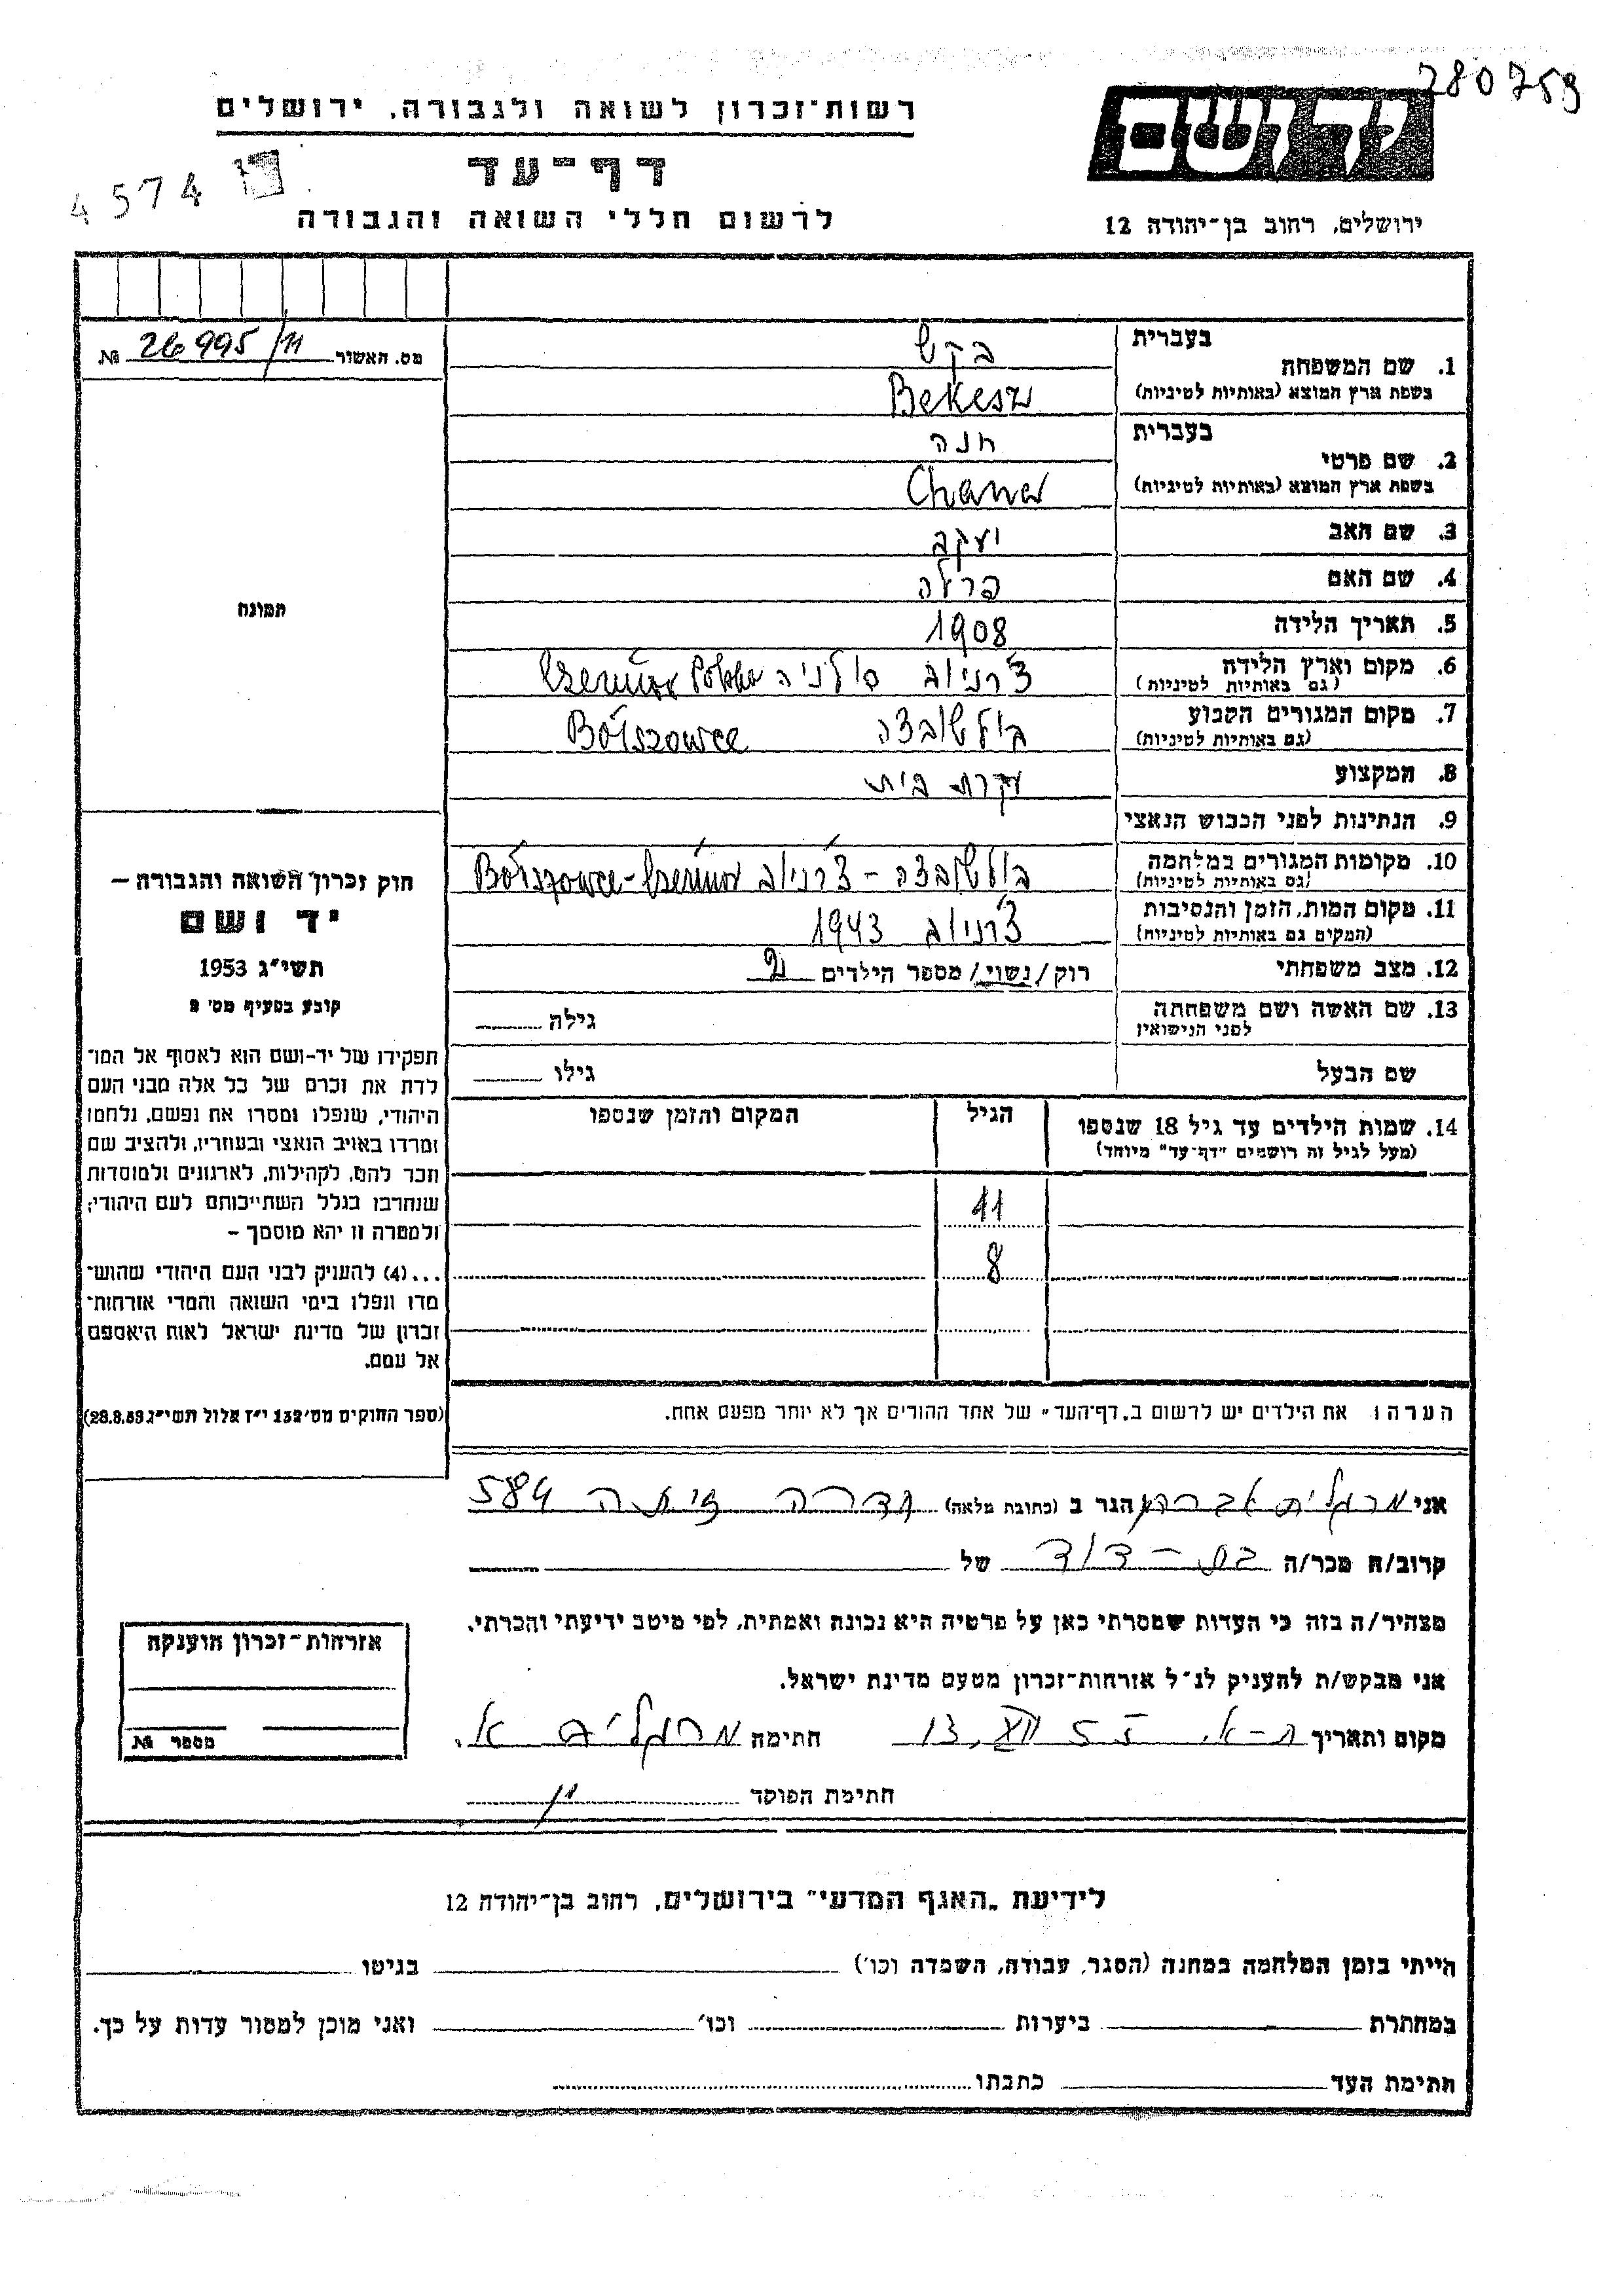 280759
רשות-זכרון לשואה ולגבורה, ירושלים
יד ושם
דף-עד
4574
לרשום חללי השואה והגבורה
ירושלים, רחוב בן-יהודה 12
מס. האשור 26995/11 №
בעברית
1. שם המשפחה בקש
בשפת ארץ המוצא (באותיות לטיניות) Bekesz
בעברית
2. שם פרטי חנה
בשפת ארץ המוצא (באותיות לטיניות) Chana
3. שם האב יעקב
4. שם האם פרלה
5. תאריך הלידה 1908
6. מקום וארץ הלידה צ'רניוב פולניה Czerniów Polska
(גם באותיות לטיניות)
7. מקום המגורים הקבוע בולשובצה Bołszowce
(גם באותיות לטיניות)
8. המקצוע עקרת בית
9. הנתינות לפני הכבוש הנאצי
10. מקומות המגורים במלחמה בולשובצה - צ'רניוב Bołszowce-Czerniów
(גם באותיות לטיניות)
11. מקום המות, הזמן והנסיבות צ'רניוב 1943
(המקום גם באותיות לטיניות)
12. מצב משפחתי רוק/נשוי/ מספר הילדים 2
13. שם האשה ושם משפחתה גילה
לפני הנישואין
שם הבעל גילו
14. שמות הילדים עד גיל 18 שנספו הגיל המקום והזמן שנספו
(מעל לגיל זה רושמים "דף-עד" מיוחד)
11
8
הערה: את הילדים יש לרשום ב"דף-העד" של אחד ההורים אך לא יותר מפעם אחת.
תמונה
חוק זכרון השואה והגבורה —
יד ושם
תשי"ג 1953
קובע בסעיף מס' 2
תפקידו של יד-ושם הוא לאסוף אל המו־
לדת את זכרם של כל אלה מבני העם
היהודי, שנפלו ומסרו את נפשם, נלחמו
ומרדו באויב הנאצי ובעוזריו, ולהציב שם
וזכר להם, לקהילות, לארגונים ולמוסדות
שנחרבו בגלל השתייכותם לעם היהודי;
ולמטרה זו יהא מוסמך —
...(4) להעניק לבני העם היהודי שהוש־
מדו ונפלו בימי השואה והמרי אזרחות־
זכרון של מדינת ישראל לאות היאספם
אל עמם.
(ספר החוקים מס' 132 י"ז אלול תשי"ג 28.8.53)
אני מרגלית אברהם הגר ב (כתובת מלאה) 584
קרוב/ה מכר/ה בת-דוד של
מצהיר/ה בזה כי העדות שמסרתי כאן על פרטיה היא נכונה ואמתית, לפי מיטב ידיעתי והכרתי.
אני מבקש/ת להעניק לנ"ל אזרחות-זכרון מטעם מדינת ישראל.
מקום ותאריך ת-א. 13.XII 55 חתימה מרגלית א.
חתימת הפוקד
אזרחות-זכרון הוענקה
מספר №
לידיעת "האגף המדעי" בירושלים, רחוב בן-יהודה 12
הייתי בזמן המלחמה במחנה (הסגר, עבודה, השמדה וכו') בגיטו
במחתרת ביערות וכו' ואני מוכן למסור עדות על כך.
חתימת העד כתבתו